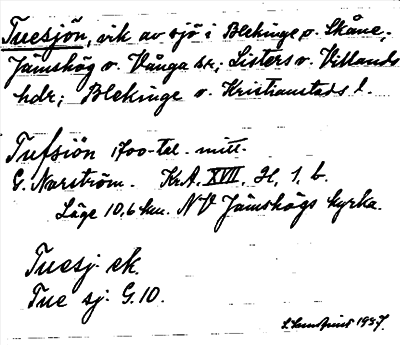 Tuesjön, vik av sjö i Blekinge o. Skåne;
Jämshög o. Vånga sn; Listers o. Villands
hdr; Blekinge o. Kristianstads l.
Tufsiön 1700-tal. mitt.
G. Narström. KrA. XVII, H, 1, b.
Läge 10,6 km. NV Jämshögs kyrka.
Tuesj. ek.
Tue sj. G.10.
1937.